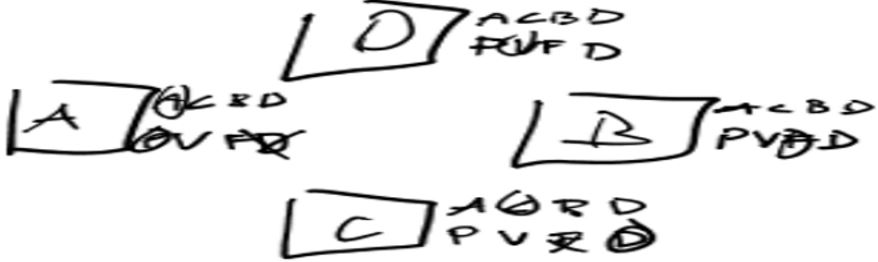 D
A C B D
P V F D
A
A C B D
P V
B
A C B D
P V D
C
A C B D
P V D